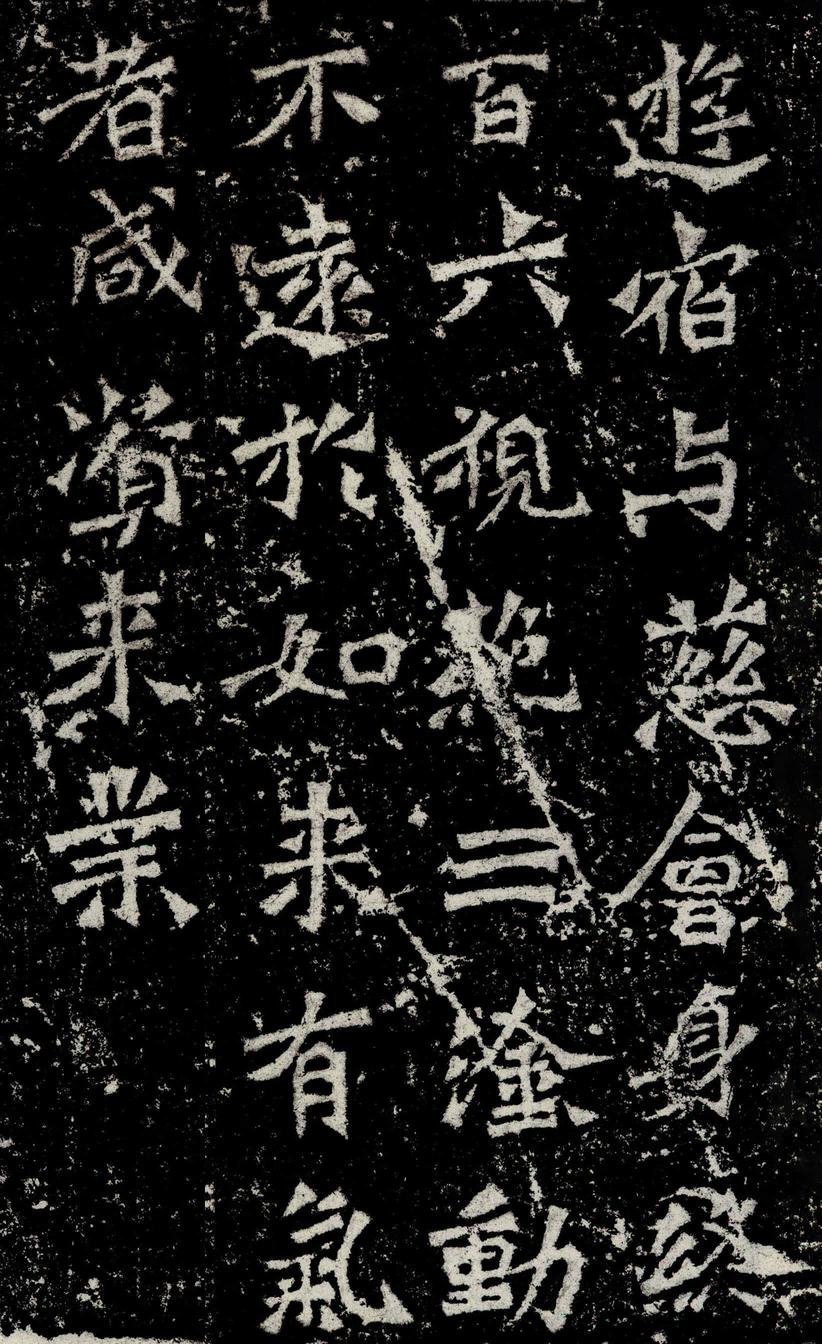 遊宿与慈會身終
百六視絶三塗動
不遠於如来有氣
者咸資来業